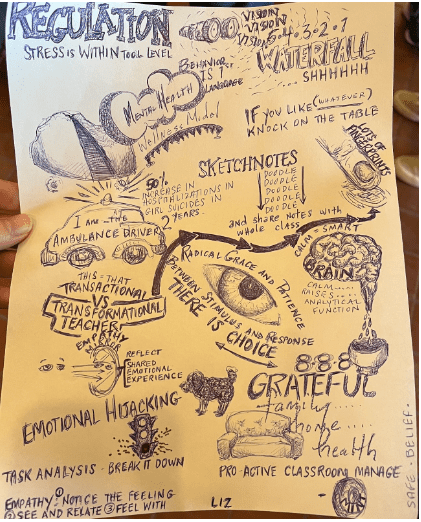 REGULATION
STRESS IS WITHIN TOOL LEVEL
VISION
VISION
VISION 5·4·3·2·1
WATERFALL
SHHHHHH
BEHAVIOR
IS A
LANGUAGE
MENTAL HEALTH
Wellness Model
IF YOU LIKE (WHATEVER)
KNOCK ON THE TABLE
LOTS OF
FINGERPRINTS
SKETCHNOTES
DOODLE
DOODLE
DOODLE
DOODLE
DOODLE
and share notes with
whole class
50%
INCREASE IN
HOSPITALIZATIONS IN
GIRL SUICIDES IN
2 YEARS.
I AM THE
AMBULANCE DRIVER
CALM = SMART
BRAIN
CALM.....
RAISES.....
ANALYTICAL
FUNCTION
RADICAL GRACE AND PATIENCE
BETWEEN STIMULUS AND RESPONSE
THERE IS CHOICE
THIS = THAT
TRANSACTIONAL
VS
TRANSFORMATIONAL
TEACHER
EMPATHY
REFLECT
SHARED
EMOTIONAL
EXPERIENCE
8-8-8
GRATEFUL
family.....
home....
health
EMOTIONAL HIJACKING
TASK ANALYSIS - BREAK IT DOWN
PRO-ACTIVE CLASSROOM MANAGE
EMPATHY: ① NOTICE THE FEELING
② SEE AND RELATE ③ FEEL WITH
LIZ
SAFE · BELIEF ·